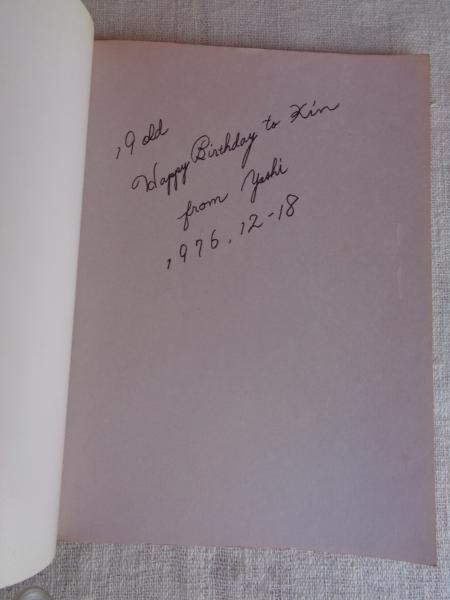 19 old
Happy Birthday to Kin
from Yoshi
1976.12-18